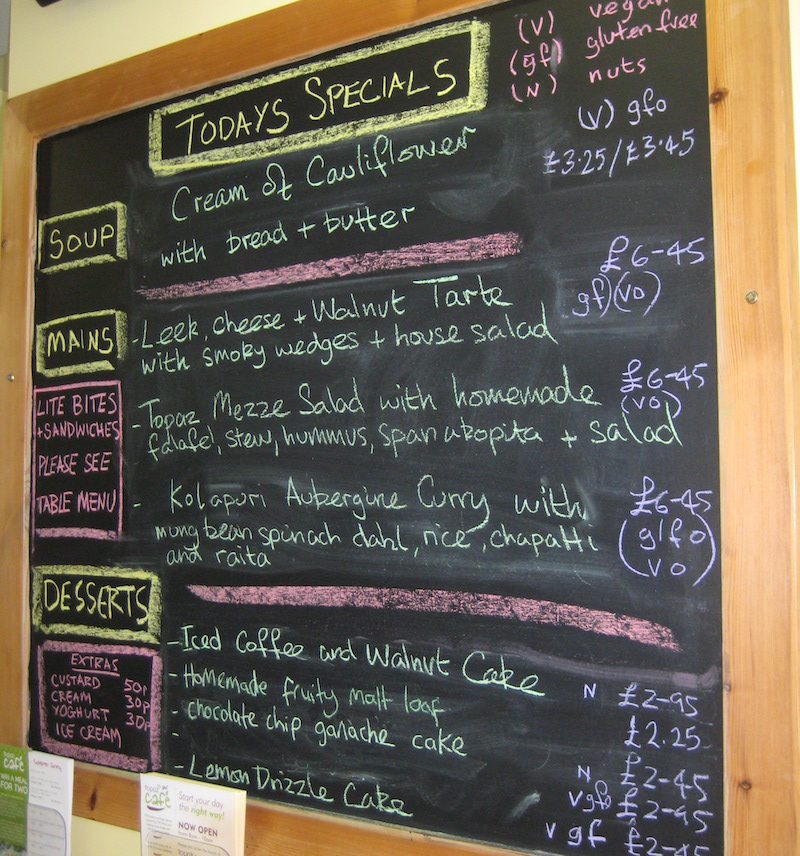 (V) vegan
(gf) gluten free
(N) nuts
TODAYS SPECIALS
SOUP
Cream of Cauliflower
with bread + butter
(V) gfo
£3.25/£3.45
MAINS
- Leek, cheese + Walnut Tarte
with smoky wedges + house salad
£6-45
gf)(vo)
- Topaz Mezze Salad with homemade
falafel, stew, hummus, spanakopita + salad
£6-45
(vo)
- Kolapuri Aubergine Curry with
mung bean spinach dahl, rice, chapatti
and raita
£6-45
(g/fo
vo)
LITE BITES
+SANDWICHES
PLEASE SEE
TABLE MENU
DESSERTS
- Iced Coffee and Walnut Cake
- Homemade fruity malt loaf
- chocolate chip ganache cake
-
- Lemon Drizzle Cake
N £2-95
£2.25
N £2-45
V gfo £2-95
V gf £2-45
EXTRAS
CUSTARD 50p
CREAM 30p
YOGHURT 30p
ICE CREAM
café
WIN A MEAL
FOR TWO
topaz
café
Start your day
the right way!
NOW OPEN